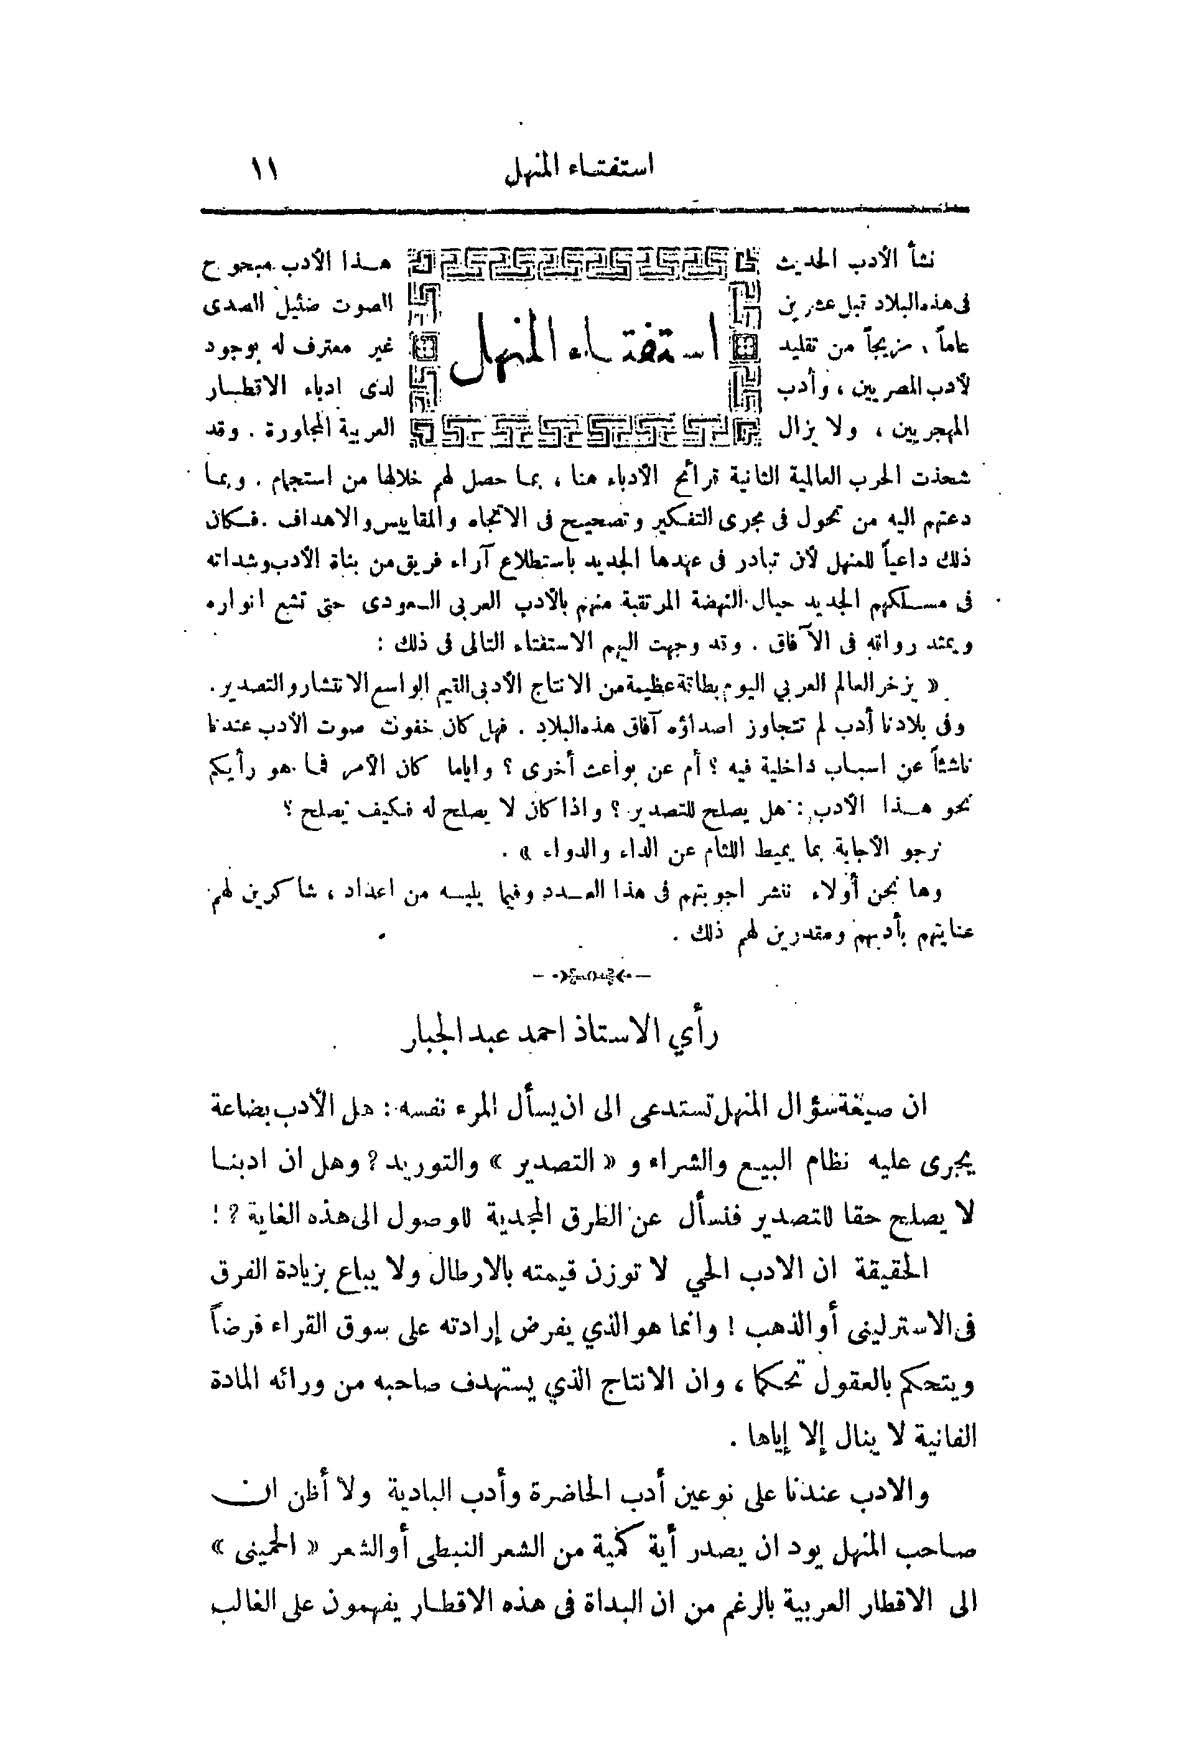 استفتاء المنهل ١١
استفتاء المنهل
نشأ الأدب الحديث
فى هذه البلاد قبل عشرين
عاماً ، مزيجاً من تقليد
لأدب المصريين ، وأدب
المهجريين ، ولا يزال
هذا الأدب مبحوح
الصوت ضئيل الصدى
غير معترف له بوجود
لدى ادباء الاقطار
العربية المجاورة . وقد
شحذت الحرب العالمية الثانية قرائح الأدباء هنا ، بما حصل لهم خلالها من استجمام . وبما
دعتهم اليه من تحول فى مجرى التفكير وتصحيح فى الاتجاه والمقاييس والاهداف . فكان
ذلك داعياً للمنهل لأن تبادر فى عهدها الجديد باستطلاع آراء فريق من بناة الأدب وشداته
فى مسلكهم الجديد حيال النهضة المرتقبة منهم بالأدب العربى السعودى حتى تشع انواره
ويمتد رواقه فى الآفاق . وقد وجهت اليهم الاستفتاء التالى فى ذلك :
« يزخر العالم العربي اليوم بطاقة عظيمة من الانتاج الأدبى القيم الواسع الانتشار والتصدير .
وفى بلادنا أدب لم تتجاوز اصداؤه آفاق هذه البلاد . فهل كان خفوت صوت الأدب عندنا
ناشئاً عن اسباب داخلية فيه ؟ أم عن بواعث أخرى ؟ واياما كان الأمر فما هو رأيكم
نحو هذا الأدب : هل يصلح للتصدير ؟ واذا كان لا يصلح له فكيف يصلح ؟
نرجو الأجابة بما يميط اللثام عن الداء والدواء » .
وها نحن أولاء ننشر اجوبتهم فى هذا العدد وفيما يليه من اعداد ، شاكرين لهم
عنايتهم بأدبهم ومقدرين لهم ذلك .
رأي الاستاذ احمد عبد الجبار
ان صيغة سؤال المنهل تستدعى الى ان يسأل المرء نفسه : هل الأدب بضاعة
يجرى عليه نظام البيع والشراء و « التصدير » والتوريد ؟ وهل ان ادبنا
لا يصلح حقا للتصدير فنسأل عن الطرق المجدية للوصول الى هذه الغاية ؟ !
الحقيقة ان الادب الحي لا توزن قيمته بالارطال ولا يباع بزيادة الفرق
فى الاسترلينى أو الذهب ! وانما هو الذي يفرض إرادته على سوق القراء فرضاً
ويتحكم بالعقول تحكما ، وان الانتاج الذي يستهدف صاحبه من ورائه المادة
الفانية لا ينال إلا إياها .
والادب عندنا على نوعين أدب الحاضرة وأدب البادية ولا أظن ان
صاحب المنهل يود ان يصدر أية كمية من الشعر النبطى أو الشعر « الحمينى »
الى الاقطار العربية بالرغم من ان البداة فى هذه الاقطار يفهمون على الغالب